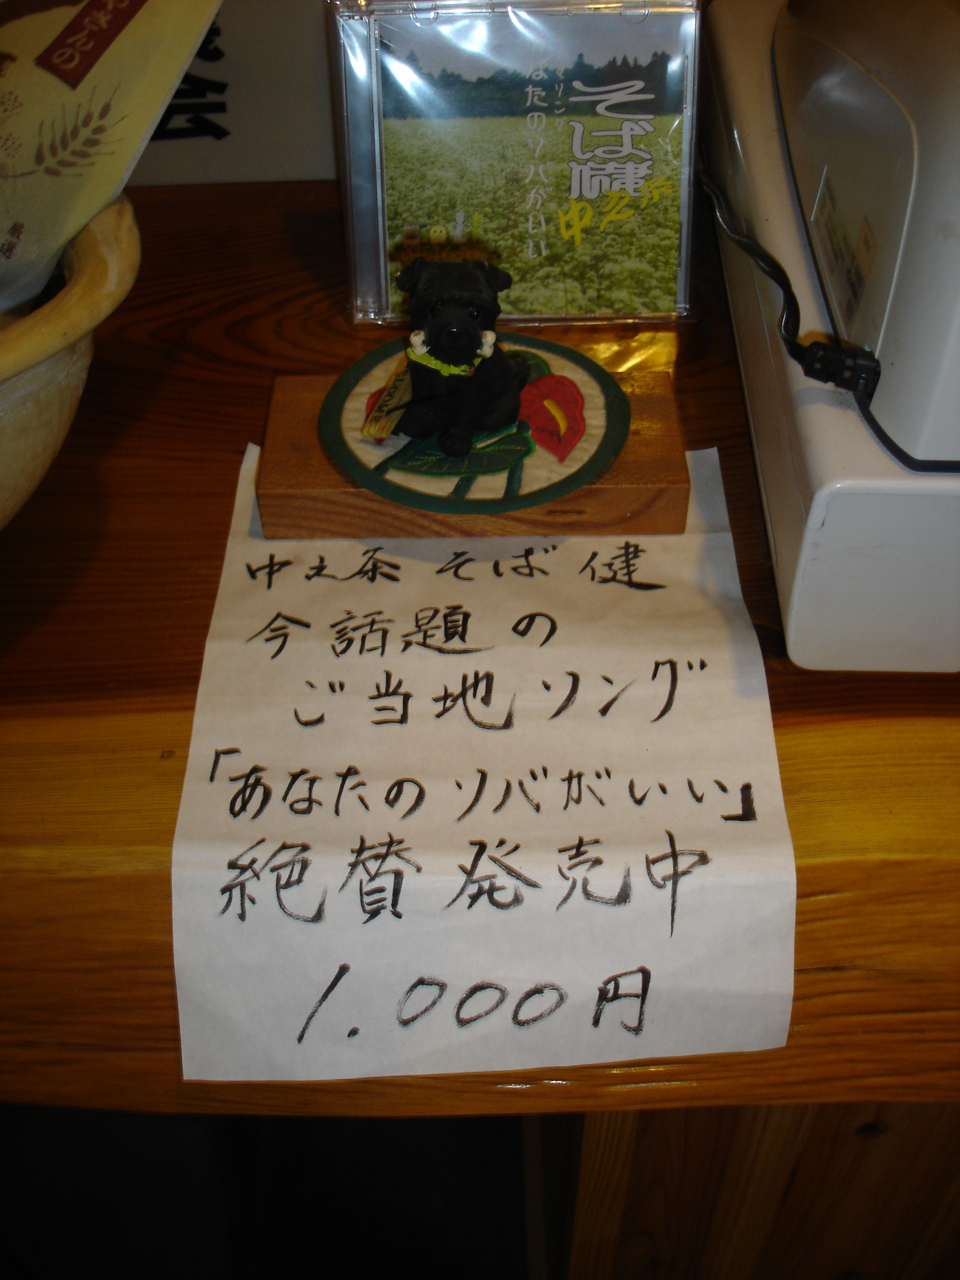 そば健
中之条
なたのソバがいい
厳選
中之条 そば 健
今 話題 の
ご当地ソング
「あなたのソバがいい」
絶賛 発売中
1.000円